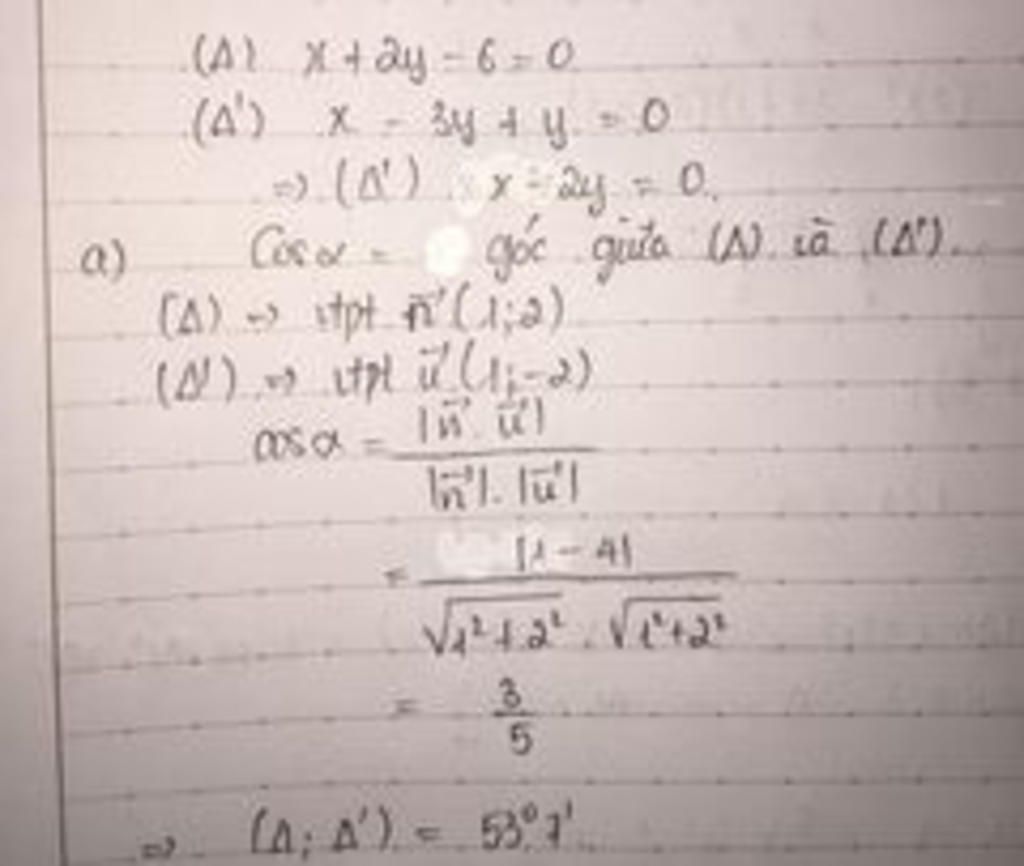 (Δ) x + 2y - 6 = 0
(Δ') x - 3y + y = 0
=> (Δ') x - 2y = 0.
a) Cos α = góc giữa (Δ) và (Δ').
(Δ) => vtpt n⃗ (1;2)
(Δ') => vtpt u⃗ (1;-2)
cos α = |n⃗ . u⃗| / |n⃗| . |u⃗|
= |1 - 4| / √1²+2² . √1²+2²
= 3/5
=> (Δ; Δ') = 53°7'